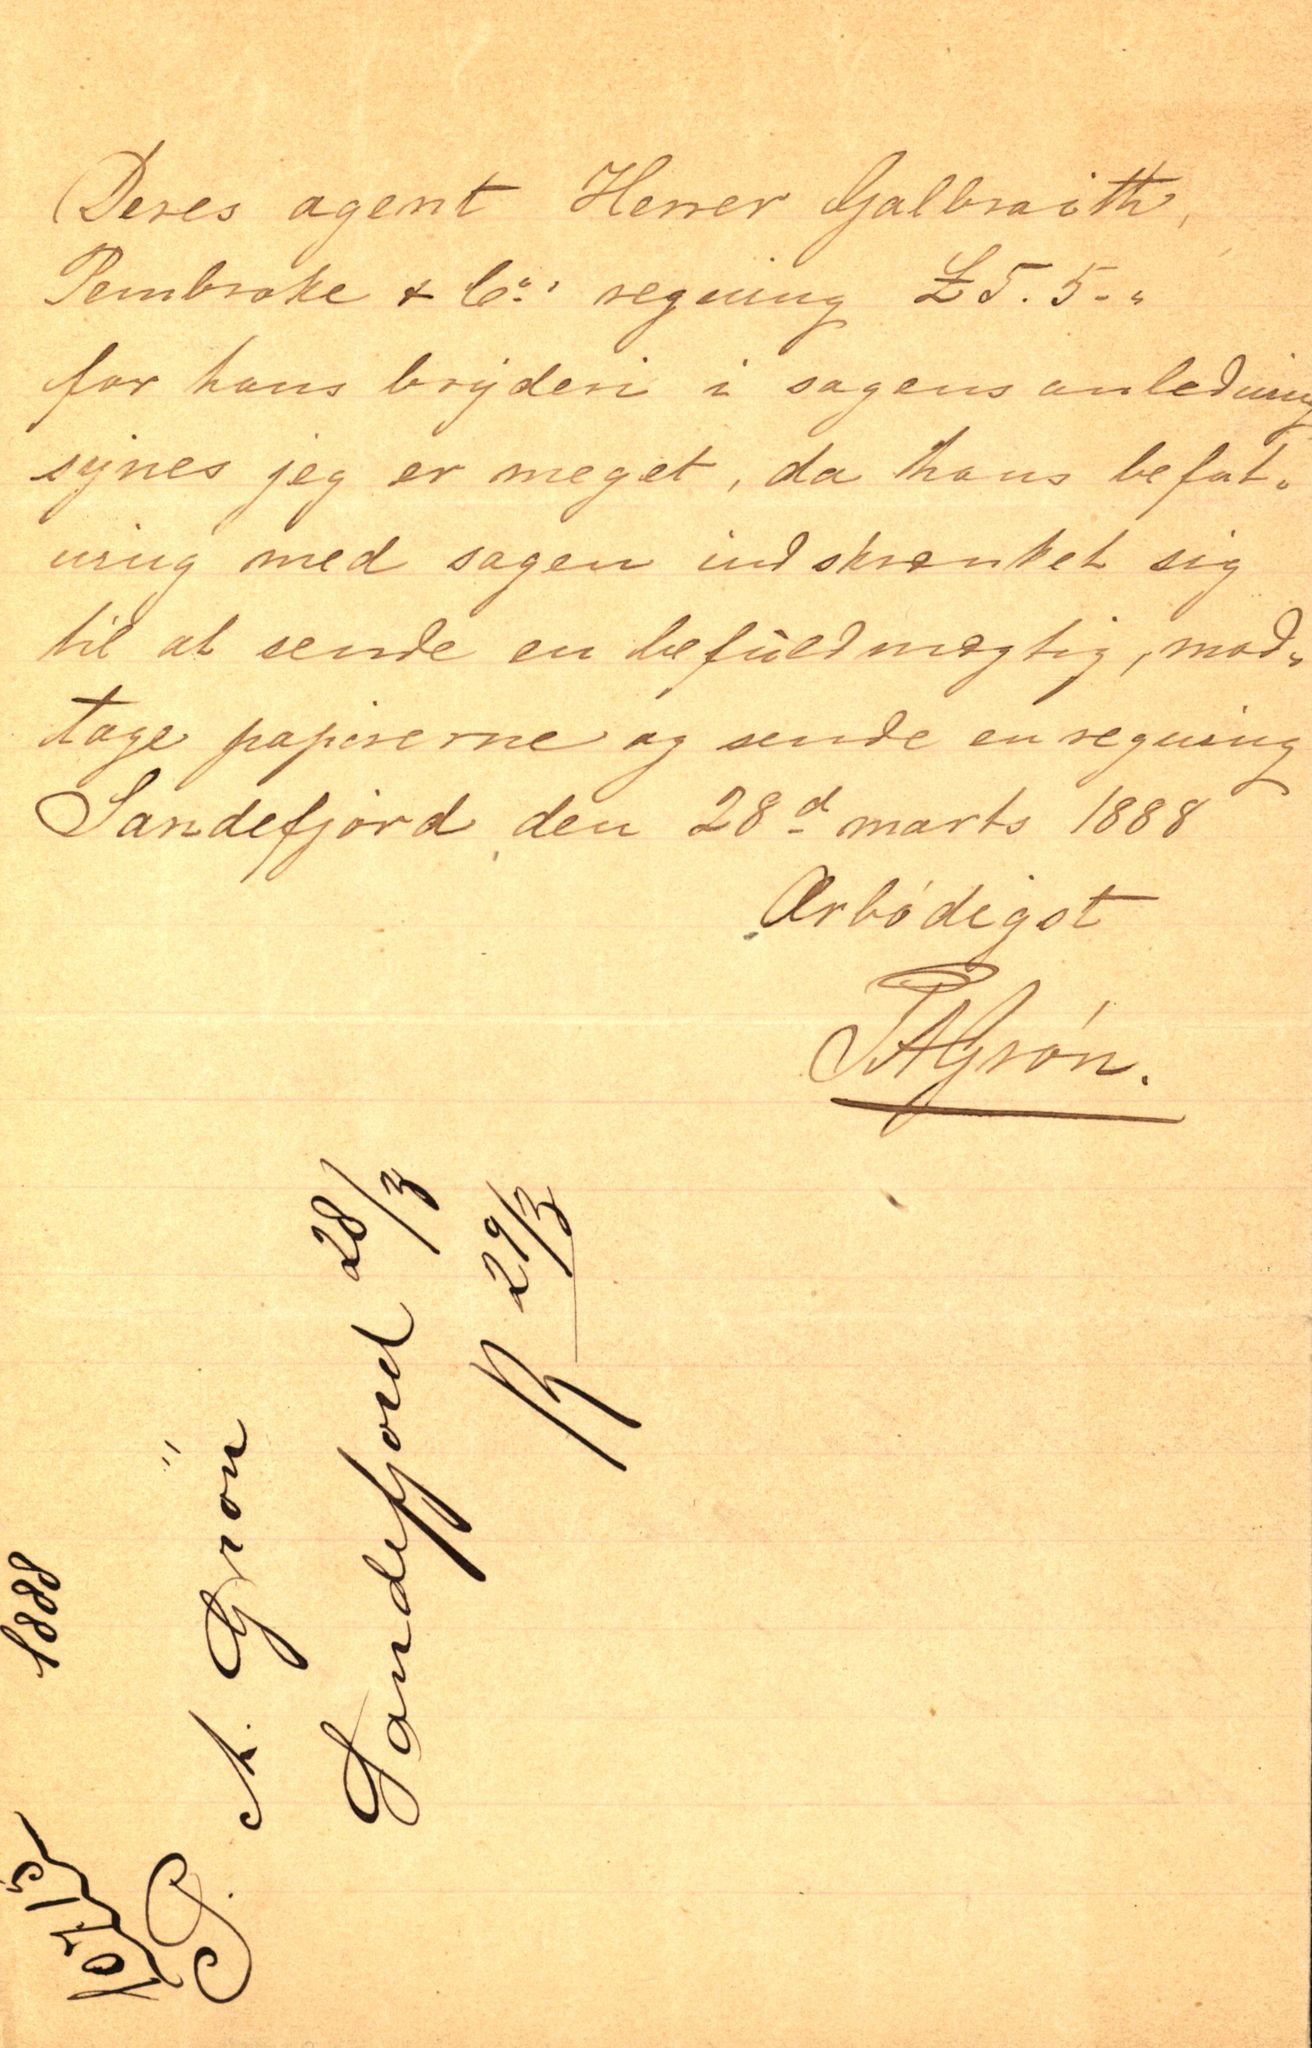 Deres agent Herrer Galbraith,
Pembroke & Co: regning £5. 5-"
for hans bryderi i sagens anledning
synes jeg er meget, da hans befat-
ning med sagen indskrænket sig
til at sende en befuldmægtig, mod-
tage papirerne og sende en regning
Sandefjord den 28d marts 1888
Ærbödigst
PAGrón.
1888
107/5
P. A. Grön
Sandefjord 28/3
29/3